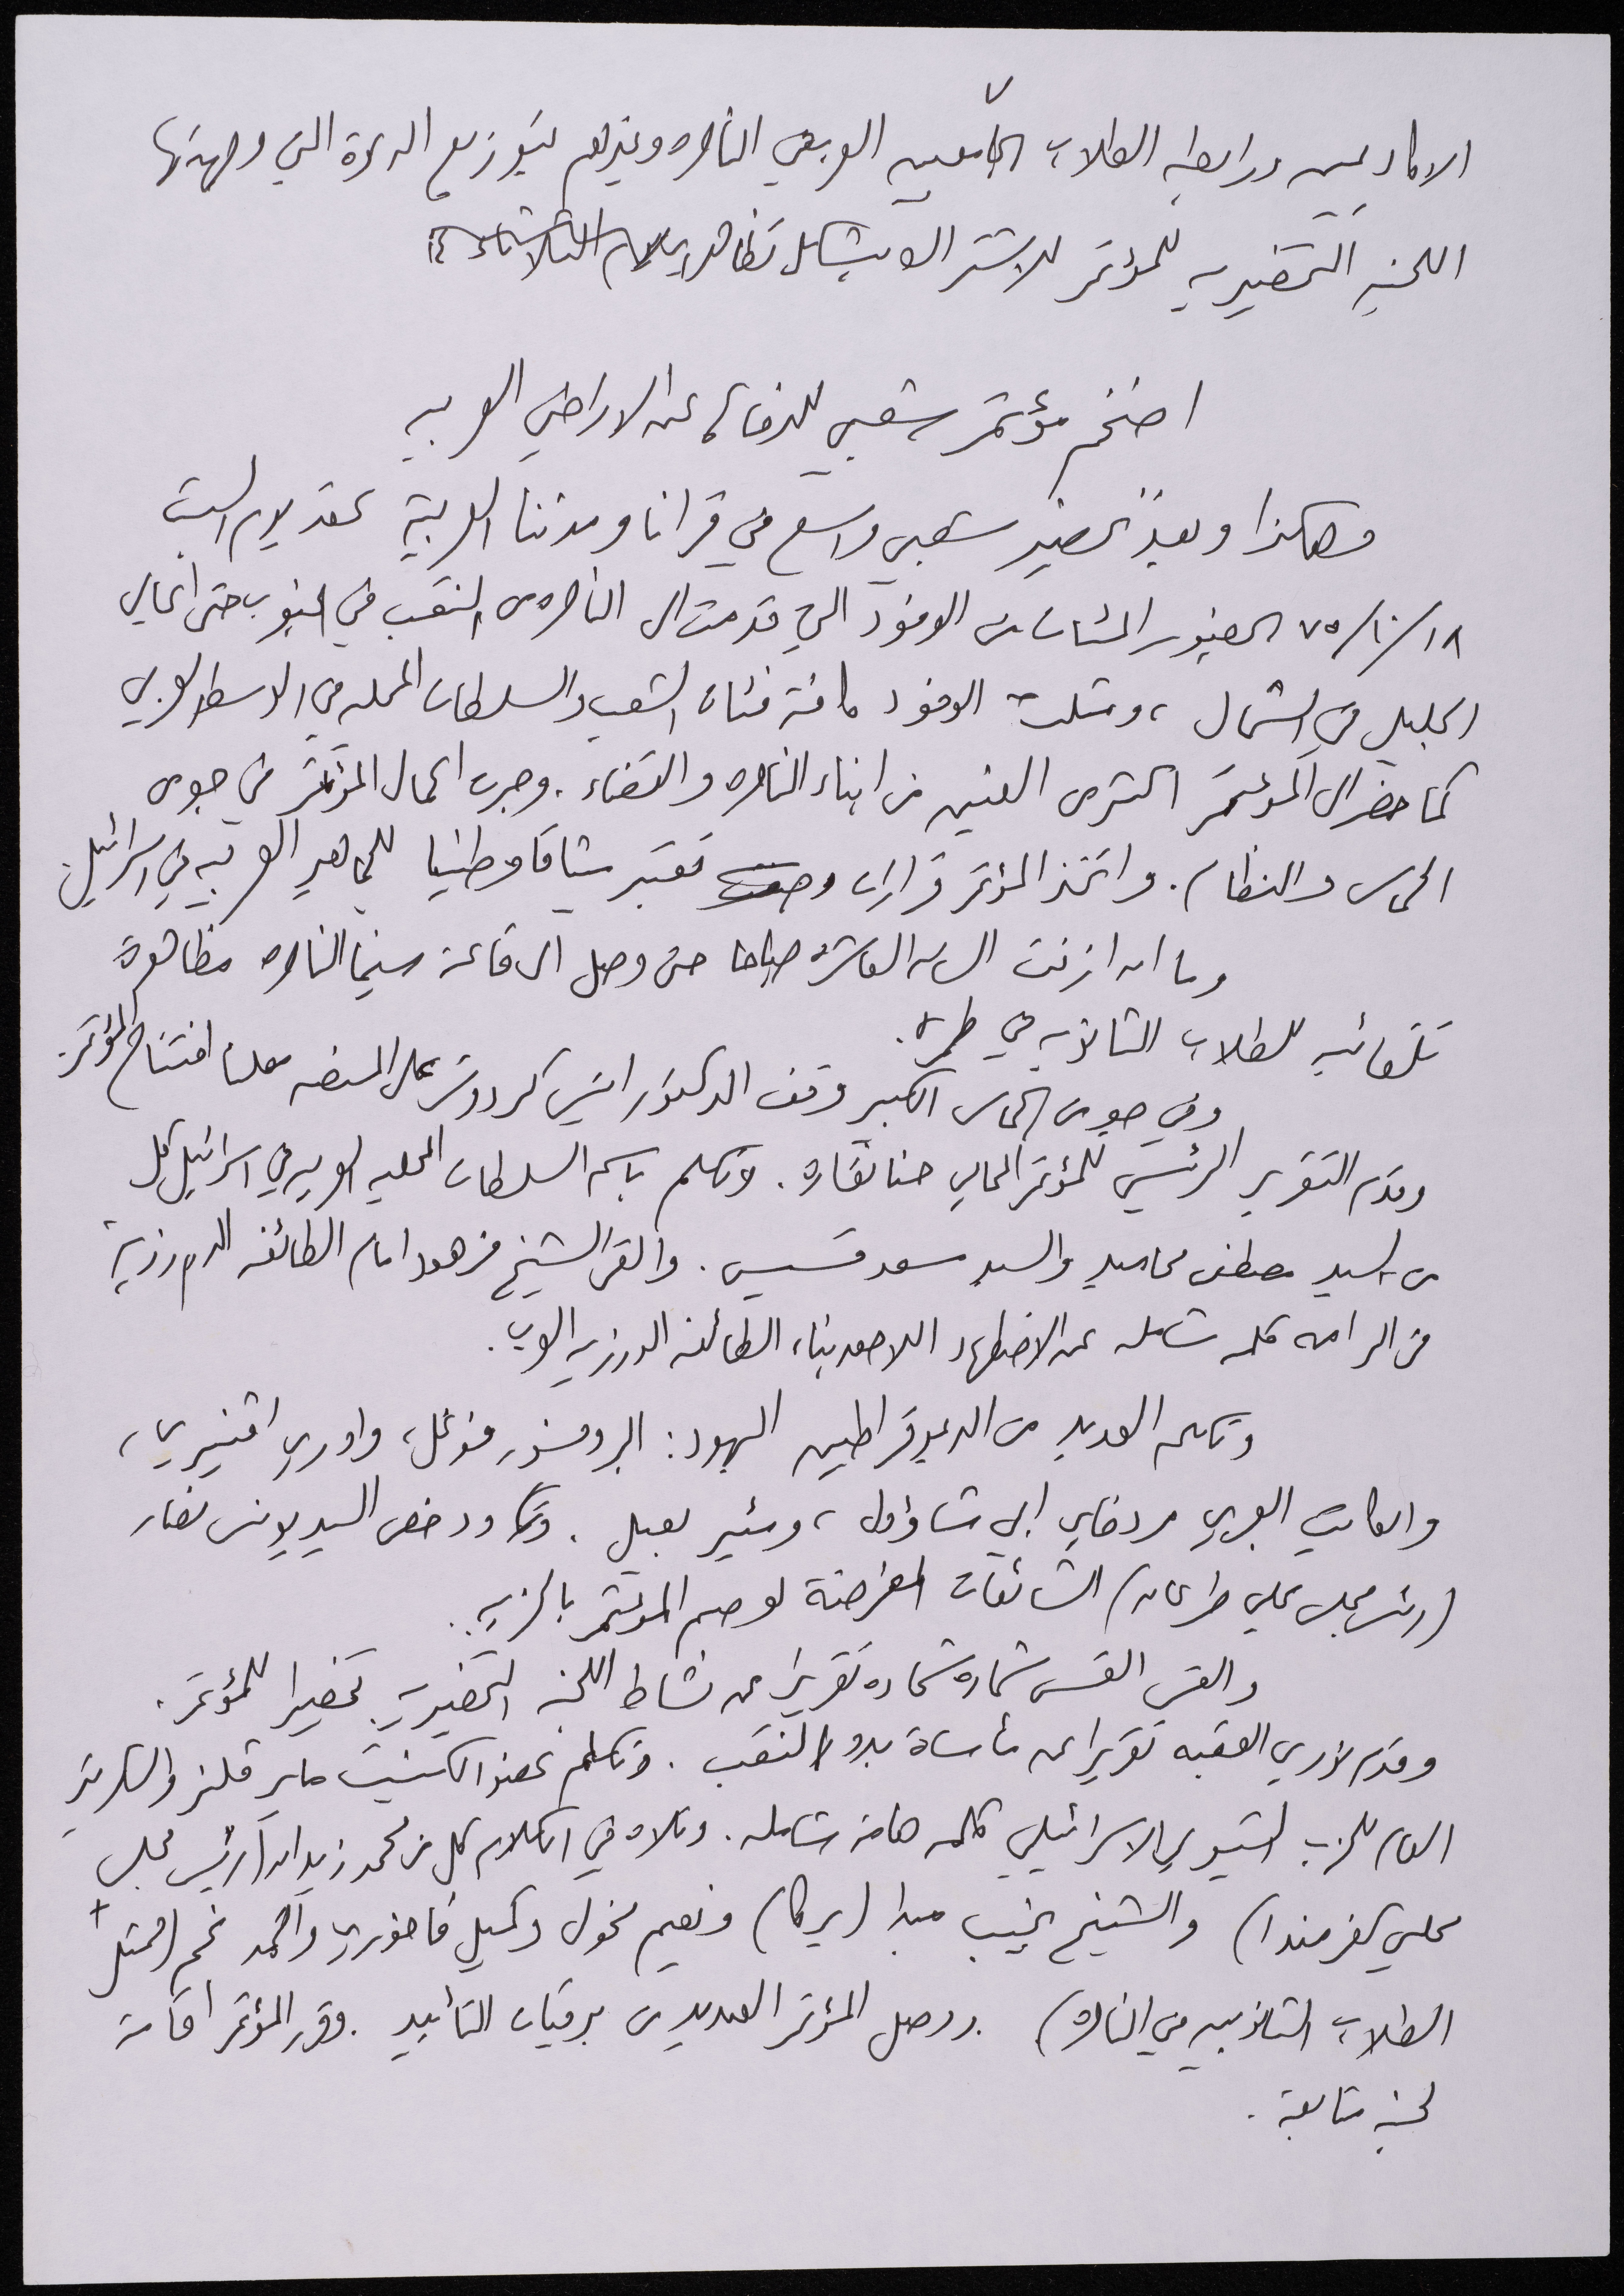 الاكاديميين ورابطة الطلاب الجامعيين العرب في الناصره وغيرهم بتوزيع الدعوة التي وجهتها
اللجنه التحضيريه للمؤتمر للاشتراك بشكل تظاهري
اضخم مؤتمر شعبي للدفاع عن الاراضي العربيه
وهكذا وبعد تحضير شعبي واسع في قرانا ومدننا العربية عقد يوم السبت
١٨/١٠/٧٥ بحضور المئات من الوفود التي قدمت الى الناصره من النقب في الجنوب حتى اعالي
الجليل في الشمال ، ومثلت الوفود كافة فئات الشعب والسلطات المحليه في الوسط العربي
كما حضر الى المؤتمر اكثر من الفين من ابناء الناصره والقضاء . وجرت اعمال المؤتمر في جو من
الحماس والنظام . واتخذ المؤتمر قرارات تعتبر ميثاقا وطنيا للجماهير العربيه في اسرائيل .
وما ان ازفت الساعه العاشره صباحا حتى وصل الى قاعة سينما الناصره مظاهرة
تلقائيه للطلاب الثانويه في طمره .
وفي جو من الحماس الكبير وقف الدكتور انيس كردوش على المنصه معلنا افتتاح المؤتمر .
وقدم التقرير الرئيسي للمؤتمر المحامي حنا نقاره . وتكلم باسم السلطات المحليه العربيه في اسرائيل كل
من السيد مصطفى محاميد والسيد مسعد قسيس . والقى الشيخ فرهود امام الطائفه الدرزية
في الرامه كلمه شامله عن الاضطهاد اللاحق بابناء الطائفه الدرزيه العرب .
وتكلم العديد من الديموقراطيين اليهود : البروفسور فوغل ، واوري افنيري ،
والكاتب العبري مردخاي ابي شاؤول ، ومئير يعبل . ودحض السيد يونس نصار
(رئيس مجلس محلي طرعان) الشائعات المغرضة لوصم المؤتمر بالحزبيه .
والقى القس شحاده شحاده تقريرا عن نشاط اللجنه التحضيريه تحضيرا للمؤتمر .
وقدم نوري العقبه تقريرا عن مأساة بدو النقب . وتكلم عضو الكنيست ماير فلنر والسكرتير
العام للحزب الشيوعي الاسرائيلي كلمه هامة شامله . وتلاه في الكلام كل من محمد زيدان (رئيس مجلس
محلي كفر مندا) والشيخ نجيب مبدا (يركا) ونعيم مخول وكميل فاخوري واحمد نجم (ممثل
الطلاب الثانويين في الناصره) . ووصل المؤتمر العديد من برقيات التأييد . وقرر المؤتمر اقامة
لجنه متابعة .